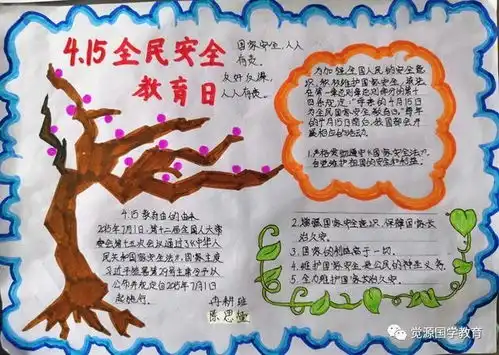 4.15全民安全
教育日
国家安全,人人
有责。
反奸反谍,
人人有责。
为加强全国人民的安全意
识,教机维护国家安全,在法
在第一章总则像总则部分的第十
四条规定:“每年的4月15日
为全民国家安全教育日。”每年
的4月15日前后,我国都会开
展相应的活动。
1.严格贯彻遵守《国家安全法》,
自觉维护祖国的安全和利益。
4.15教育日的由来
2015年7月1日,第十二届全国人大常
委会第十五次会议通过了《中华人
民共和国国家安全法》。国家主席
习近平签署第29号主席令予以
公布并规定自2015年7月1日
起施行。
冉耕班
陈思
2.增强国家安全意识,保障国家长
治久安。
3.国家的利益高于一切。
4.维护国家安全是公民的神圣义务。
5.全力维护国家长治久安。
觉源国学教育